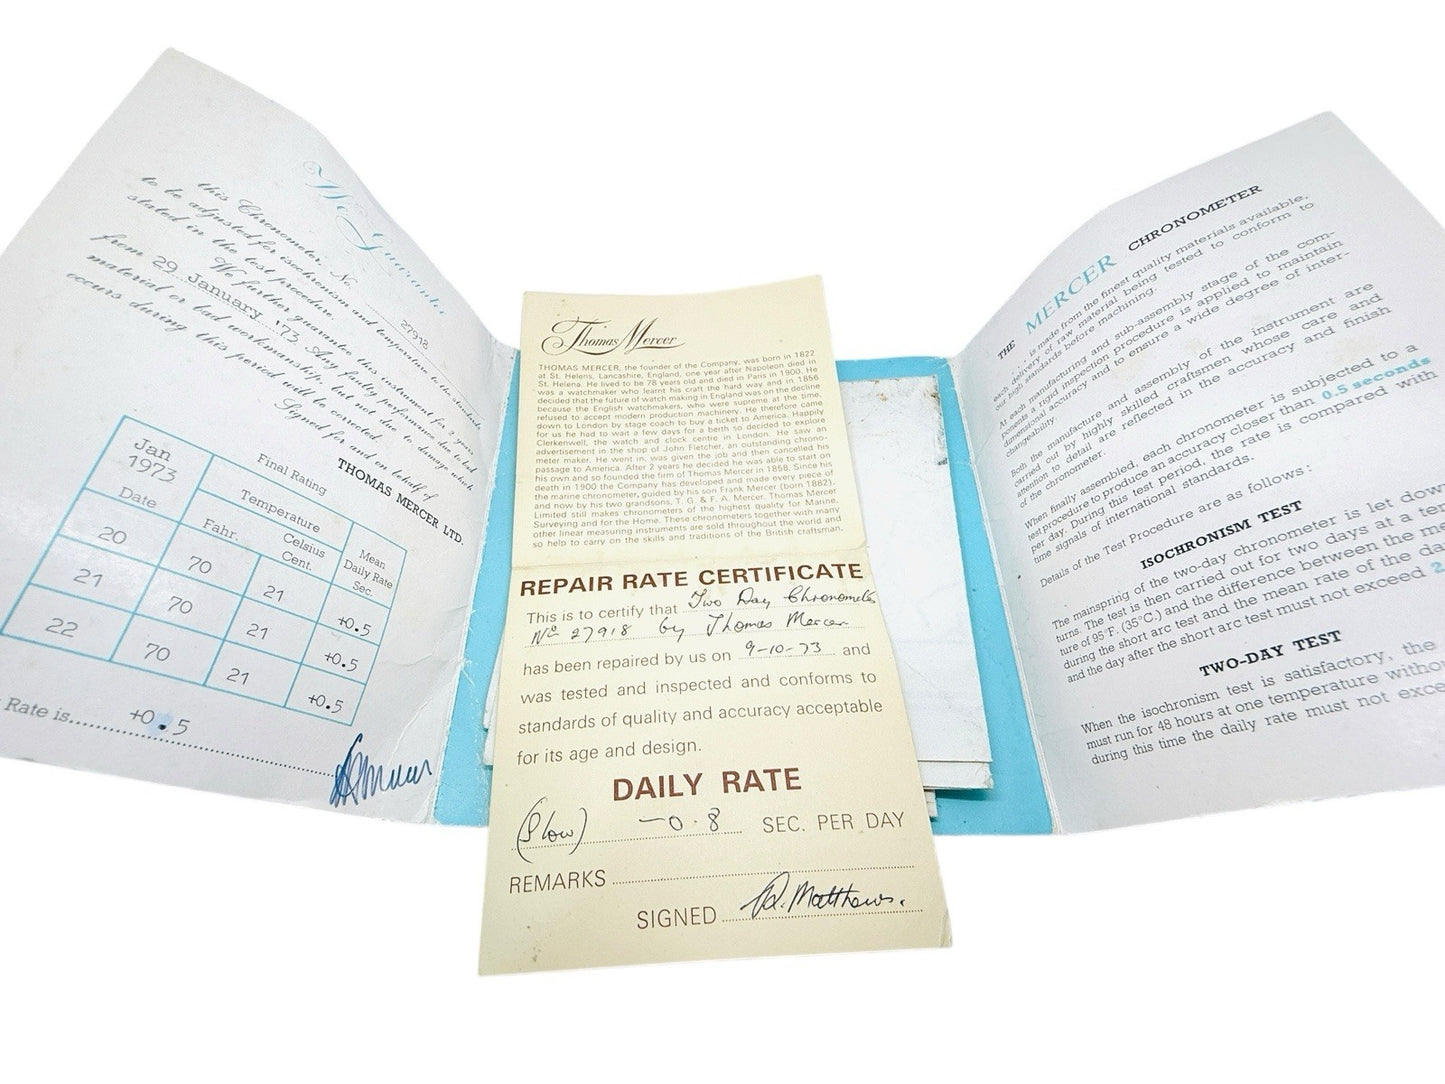 We Guarantee
this Chronometer, No. 27918
to be adjusted for isochronism and temperature to the standards
stated in the test procedure.
We further guarantee this instrument for 2 years
from 29 January '73, Any faulty performance due to bad
material or bad workmanship, but not due to damage which
occurs during this period will be corrected.
Signed for and on behalf of
THOMAS MERCER LTD.
Final Rating
Jan
1973
Date
Temperature
Fahr.
Celsius
Cent.
Mean
Daily Rate
Sec.
20 70 21 +0.5
21 70 21 +0.5
22 70 21 +0.5
Rate is +0.5
Thomas Mercer
THOMAS MERCER, the founder of the Company, was born in 1822
at St. Helens, Lancashire, England, one year after Napoleon died in
St. Helena. He lived to be 78 years old and died in Paris in 1900. He
was a watchmaker who learnt his craft the hard way and in 1856
decided that the future of watch making in England was on the decline
because the English watchmakers, who were supreme at the time,
refused to accept modern production machinery. He therefore came
down to London by stage coach to buy a ticket to America. Happily
for us he had to wait a few days for a berth so decided to explore
Clerkenwell, the watch and clock centre in London. He saw an
advertisement in the shop of John Fletcher, an outstanding chrono-
meter maker. He went in, was given the job and then cancelled his
passage to America. After 2 years he decided he was able to start on
his own and so founded the firm of Thomas Mercer in 1858. Since his
death in 1900 the Company has developed and made every piece of
the marine chronometer, guided by his son Frank Mercer (born 1882),
and now by his two grandsons, T. G. & F. A. Mercer. Thomas Mercer
Limited still makes chronometers of the highest quality for Marine,
Surveying and for the Home. These chronometers together with many
other linear measuring instruments are sold throughout the world and
so help to carry on the skills and traditions of the British craftsman.
REPAIR RATE CERTIFICATE
This is to certify that Two Day Chronometer
No 27918 by Thomas Mercer
has been repaired by us on 9-10-73 and
was tested and inspected and conforms to
standards of quality and accuracy acceptable
for its age and design.
DAILY RATE
(Slow) -0.8 SEC. PER DAY
REMARKS
SIGNED D. Matthews.
THE MERCER CHRONOMETER
is made from the finest quality materials available,
each delivery of raw material being tested to conform to
our high standards before machining.
At each manufacturing and sub-assembly stage of the com-
ponents a rigid inspection procedure is applied to maintain
dimensional accuracy and to ensure a wide degree of inter-
changeability.
Both the manufacture and assembly of the instrument are
carried out by highly skilled craftsmen whose care and
attention to detail are reflected in the accuracy and finish
of the chronometer.
When finally assembled, each chronometer is subjected to a
test procedure to produce an accuracy closer than 0.5 seconds
per day. During this test period, the rate is compared with
time signals of international standards.
Details of the Test Procedure are as follows:
ISOCHRONISM TEST
The mainspring of the two-day chronometer is let down
turns. The test is then carried out for two days at a
ture of 95°F. (35°C.) and the difference between the
during the short arc test and the mean rate of the
and the day after the short arc test must not exceed 2.
TWO-DAY TEST
When the isochronism test is satisfactory, the
must run for 48 hours at one temperature
during this time the daily rate must not